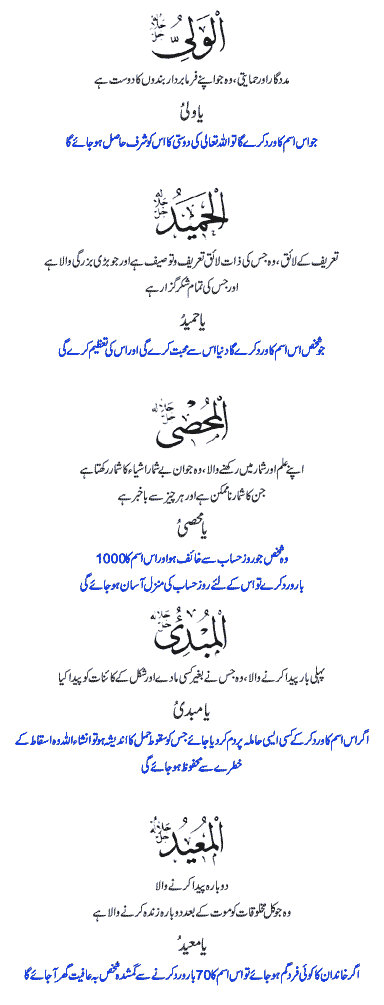 الْوَلِىُّ جل جلاله
مددگار اور حمایتی، وہ جو اپنے فرمابردار بندوں کا دوست ہے
یا ولیُ
جو اس اسم کا ورد کرے گا تو اللہ تعالی کی دوستی کا اس کو شرف حاصل ہو جائے گا
الْحَمِيْدُ جل جلاله
تعریف کے لائق، وہ جس کی ذات لائق تعریف و توصیف ہے اور جو بڑی بزرگی والا ہے
اور جس کی تمام شکر گزار ہے
یا حمیدُ
جو شخص اس اسم کا ورد کرے گا دنیا اس سے محبت کرے گی اور اس کی تعظیم کرے گی
الْمُحْصِىْ جل جلاله
اپنے علم اور شمار میں رکھنے والا، وہ جو ان بے شمار اشیاء کا شمار رکھتا ہے
جن کا شمار ناممکن ہے اور ہر چیز سے باخبر ہے
یا محصیُ
وہ شخص جو روز حساب سے خائف ہو اور اس اسم کا 1000
بار ورد کرے تو اس کے لئے روز حساب کی منزل آسان ہو جائے گی
الْمُبْدِئُ جل جلاله
پہلی بار پیدا کرنے والا، وہ جس نے بغیر کسی مادے اور شکل کے کائنات کو پیدا کیا
یا مبدیُ
اگر اس اسم کا ورد کر کے کسی ایسی حاملہ پر دم کر دیا جائے جس کو سقوط حمل کا اندیشہ ہو تو انشاء اللہ وہ اسقاط کے
خطرے سے محفوظ ہو جائے گی
الْمُعِيْدُ جل جلاله
دوبارہ پیدا کرنے والا
وہ جو کل مخلوقات کو موت کے بعد دوبارہ زندہ کرنے والا ہے
یا معیدُ
اگر خاندان کا کوئی فرد گم ہو جائے تو اس اسم کا 70 بار ورد کرنے سے گمشدہ شخص بہ عافیت گھر آ جائے گا